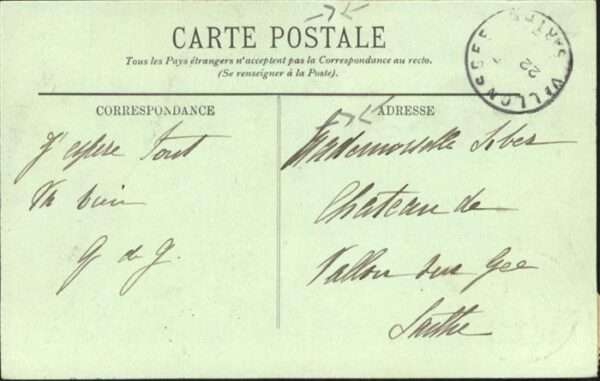 CARTE POSTALE
Tous les Pays étrangers n'acceptent pas la Correspondance au recto.
(Se renseigner à la Poste).
CORRESPONDANCE
J'espère tout
va bien
G de G.
ADRESSE
Mademoiselle
Chateau de
Vallon sur Gee
Sarthe
22
SARTHE